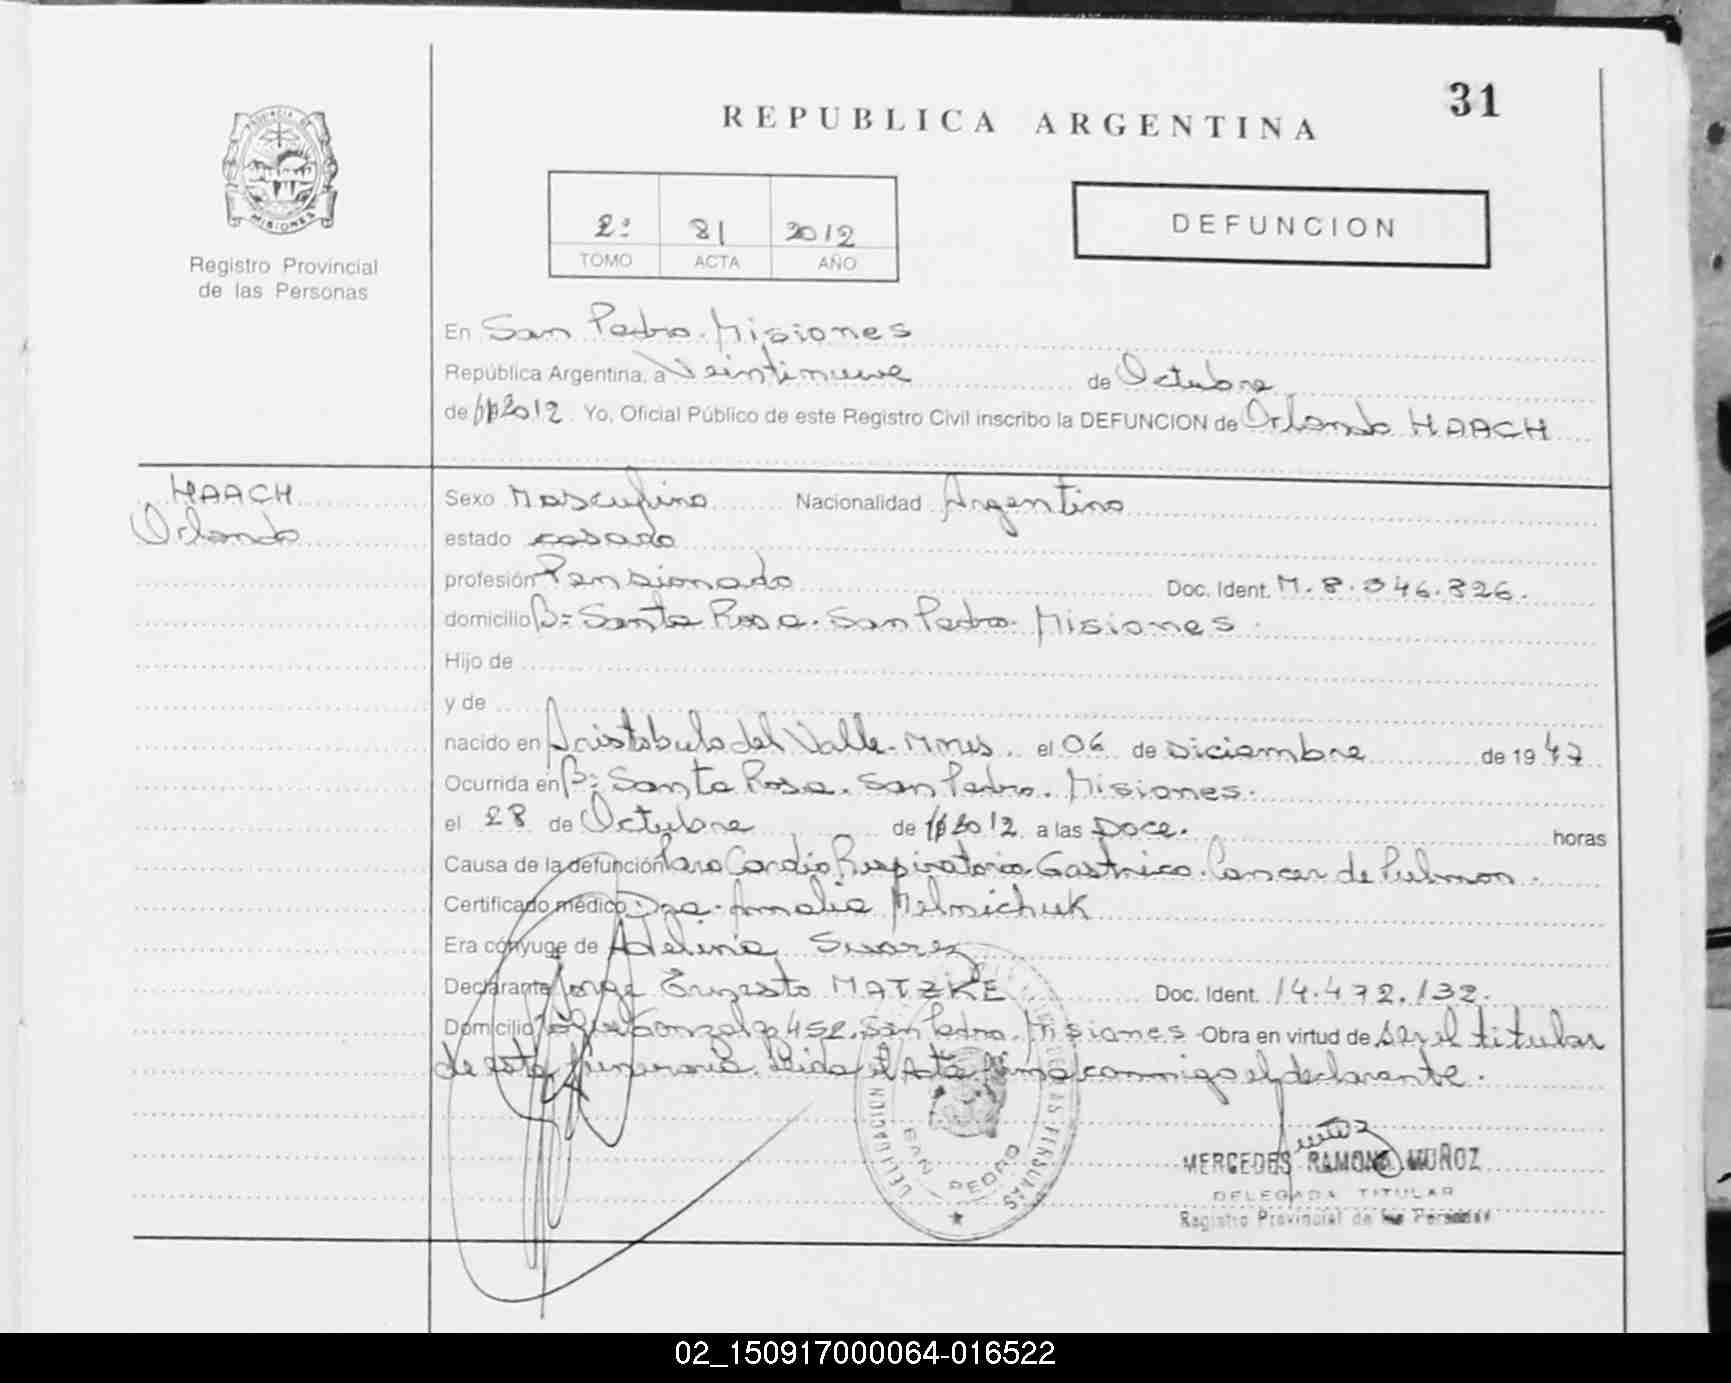 31
REPUBLICA ARGENTINA
PROVINCIA DE
MISIONES
Registro Provincial
de las Personas
2º 81 2012
TOMO ACTA AÑO
DEFUNCION
En San Pedro. Misiones
República Argentina, a Veintinueve de Octubre
de 2012. Yo, Oficial Público de este Registro Civil inscribo la DEFUNCION de Orlando HAACH
HAACH
Orlando
Sexo Masculino Nacionalidad Argentino
estado casado
profesión Pensionado Doc. Ident. M. 8.346.826.
domicilio Bº: Santa Rosa. San Pedro. Misiones.
Hijo de
y de
nacido en Aristobulo del Valle. Mnes. el 06 de Diciembre de 1947
Ocurrida en Bº: Santa Rosa. San Pedro. Misiones.
el 28 de Octubre de 2012 a las Doce. horas
Causa de la defunción Paro Cardio Respiratorio. Gastrico. Cancer de Pulmon.
Certificado médico: Dra. Amalia Melnichuk
Era cónyuge de Adelina Suarez
Declarante Jorge Ernesto MATZKE Doc. Ident. 14.472.132.
Domicilio 452. San Pedro. Misiones Obra en virtud de ser el titular
de esta funeraria. Leida el Acta firma conmigo el declarante.
DELEGACION SAN PEDRO
MERCEDES RAMONA MUÑOZ
DELEGADA TITULAR
Registro Provincial de las Personas
02_150917000064-016522